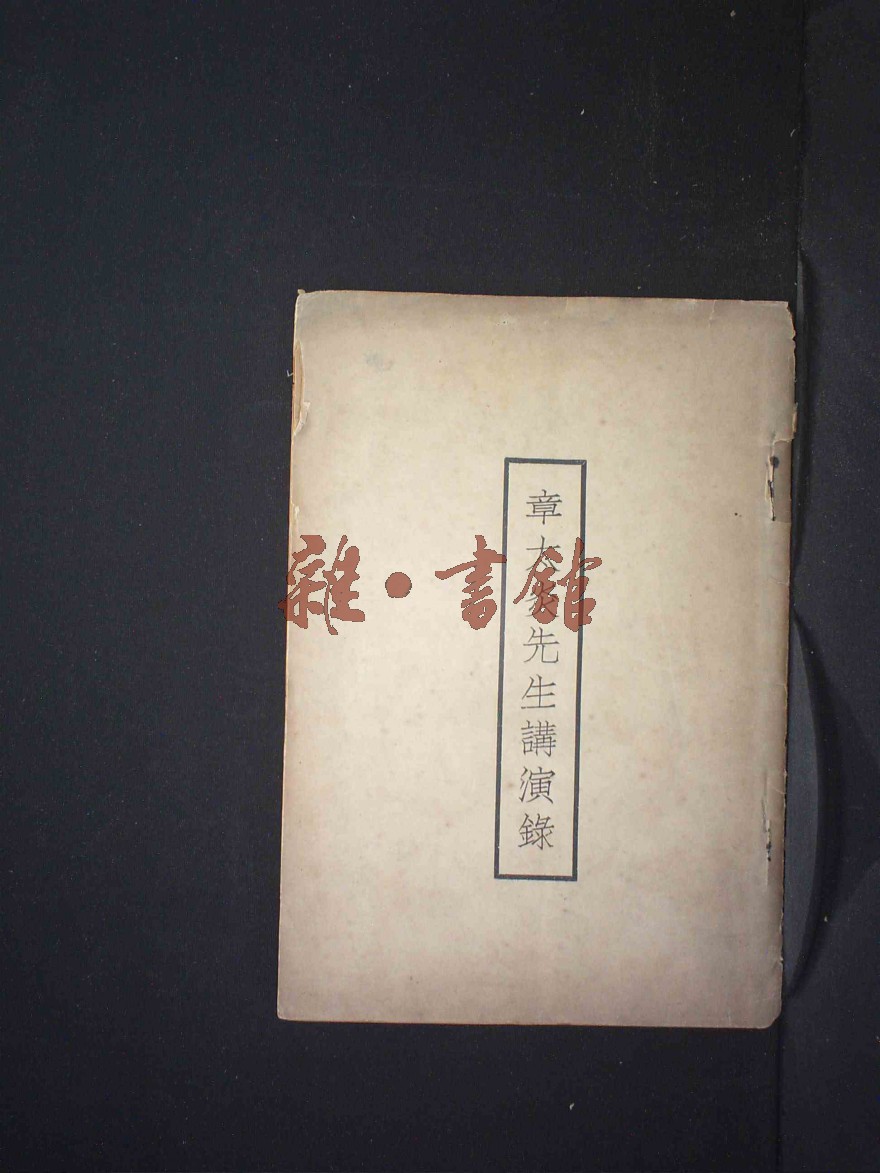 章太炎先生講演錄
雜·書館